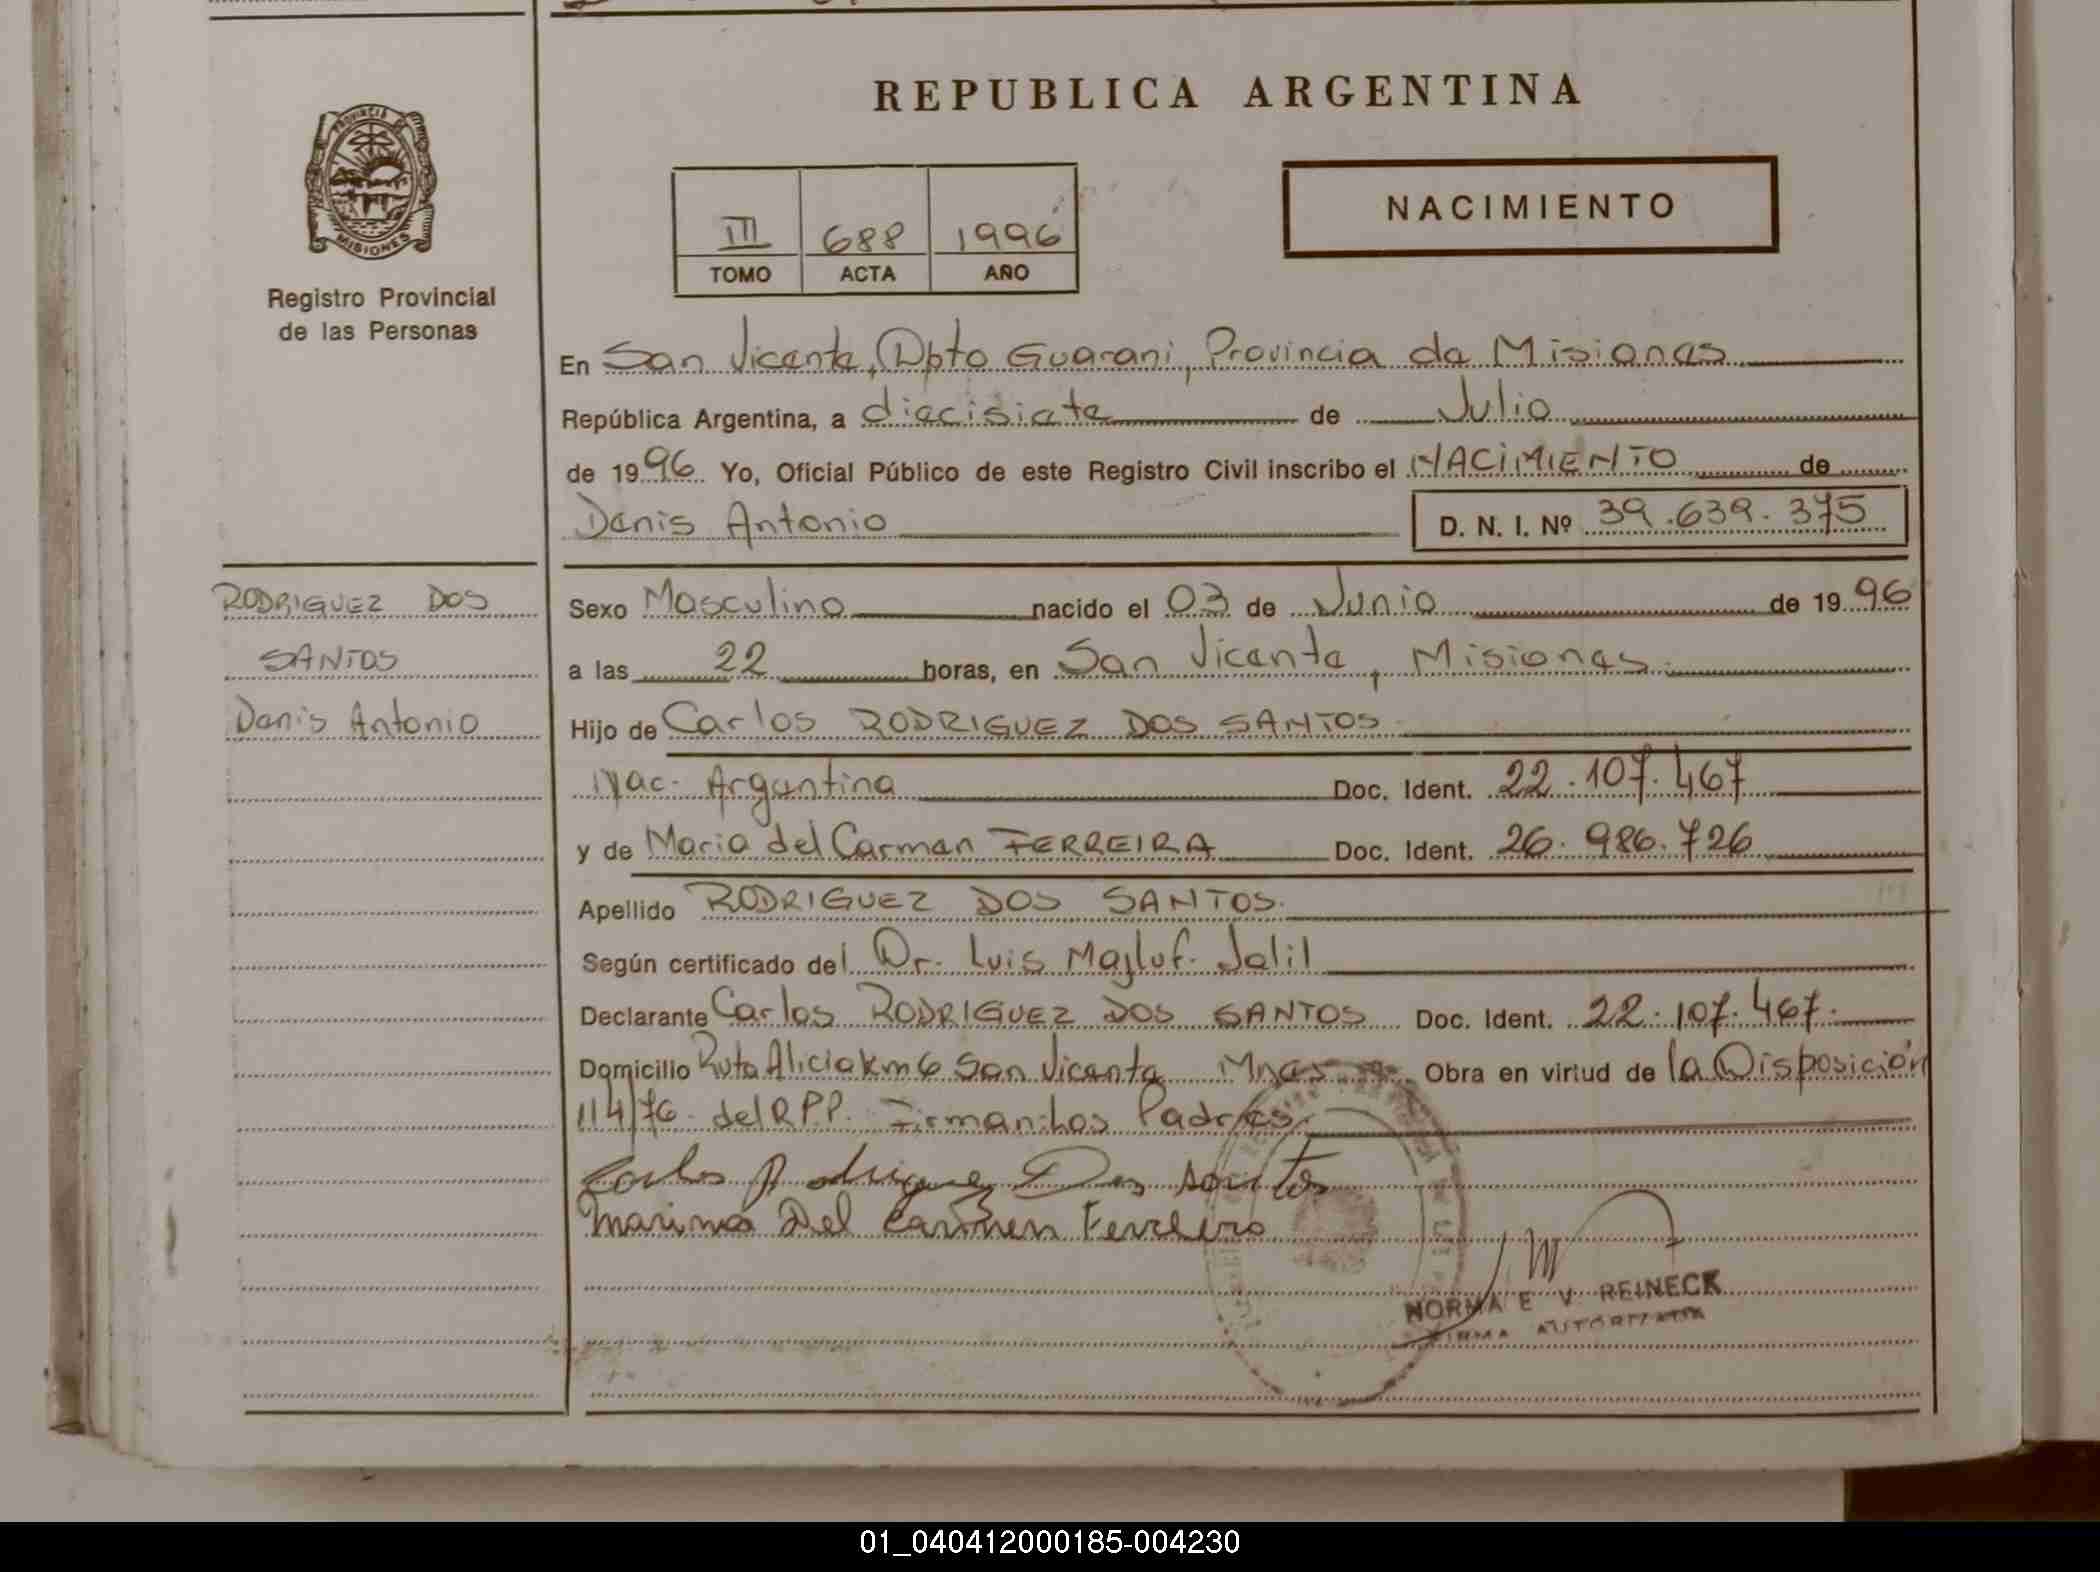 REPUBLICA ARGENTINA
PROVINCIA DE
MISIONES
Registro Provincial
de las Personas
III 688 1996
TOMO ACTA AÑO
NACIMIENTO
En San Vicente, Dpto Guarani, Provincia de Misiones
República Argentina, a diecisiete de Julio
de 1996 Yo, Oficial Público de este Registro Civil inscribo el NACIMIENTO de
Denis Antonio D. N. I. Nº 39.639.375
RODRIGUEZ DOS
SANTOS
Denis Antonio
Sexo Masculino nacido el 03 de Junio de 1996
a las 22 horas, en San Vicente, Misiones.
Hijo de Carlos RODRIGUEZ DOS SANTOS
Nac. Argentina Doc. Ident. 22.107.467
y de Maria del Carmen FERREIRA Doc. Ident. 26.986.726
Apellido RODRIGUEZ DOS SANTOS.
Según certificado del Dr. Luis Majluf. Jalil
Declarante Carlos RODRIGUEZ DOS SANTOS Doc. Ident. 22.107.467.
Domicilio Ruta Alicia km 6 San Vicente Mnes Obra en virtud de la Disposición
114/76 del R.P.P. Firman: los Padres.
Carlos Rodriguez Dos santos
Del Carmen Ferreira
NORMA E V. REINECK
FIRMA AUTORIZADA
01_040412000185-004230